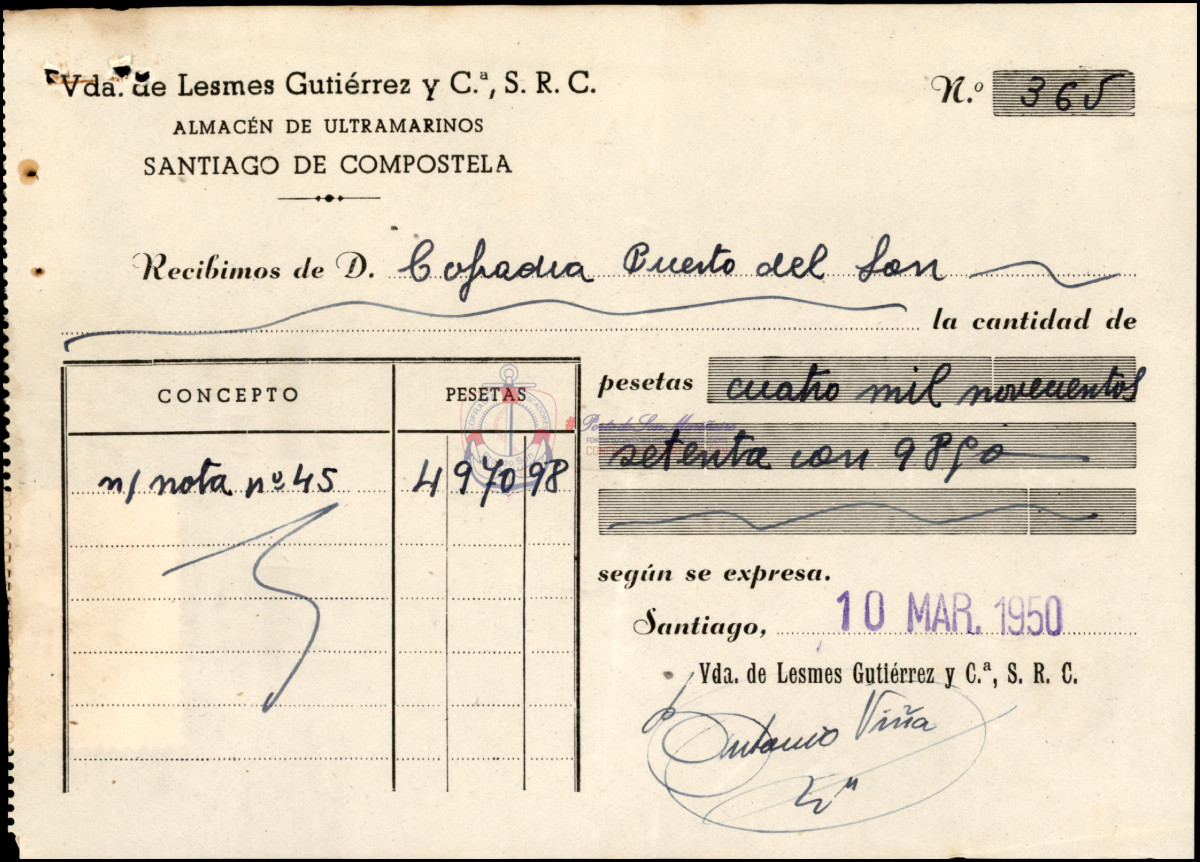 Vda. de Lesmes Gutiérrez y C.ª, S. R. C.
ALMACÉN DE ULTRAMARINOS
SANTIAGO DE COMPOSTELA
N.º 365
Recibimos de D. Cofradia Puerto del Son
la cantidad de
CONCEPTO PESETAS
n/ nota nº 45 4 970 98
pesetas cuatro mil novecientos
setenta con 98
según se expresa.
Santiago, 10 MAR. 1950
Vda. de Lesmes Gutiérrez y C.ª, S. R. C.
Antonio Viña